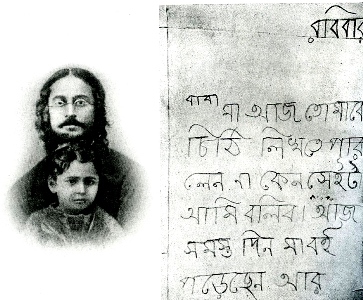 রবিবার
বাবা মা আজ তোমাকে
চিঠি লিখতে পার
লেন না কেন সেইটে
আমি বলিব। আজ
সমস্ত দিন সবই
পড়েছেন আর